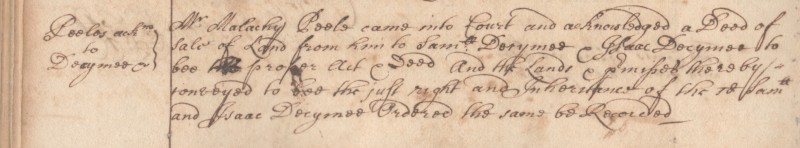 Peeles ackno
to
Decymees
Mr Malachy Peele came into Court and acknowledged a Deed of
Sale of Land from him to Samll Decymee & Isaac Decymee to
bee proper Act & Deed And the Lands & pmises thereby
conveyed to bee the just right and Inheritance of the sd Samll
and Isaac Decymee Ordered the same be Recorded